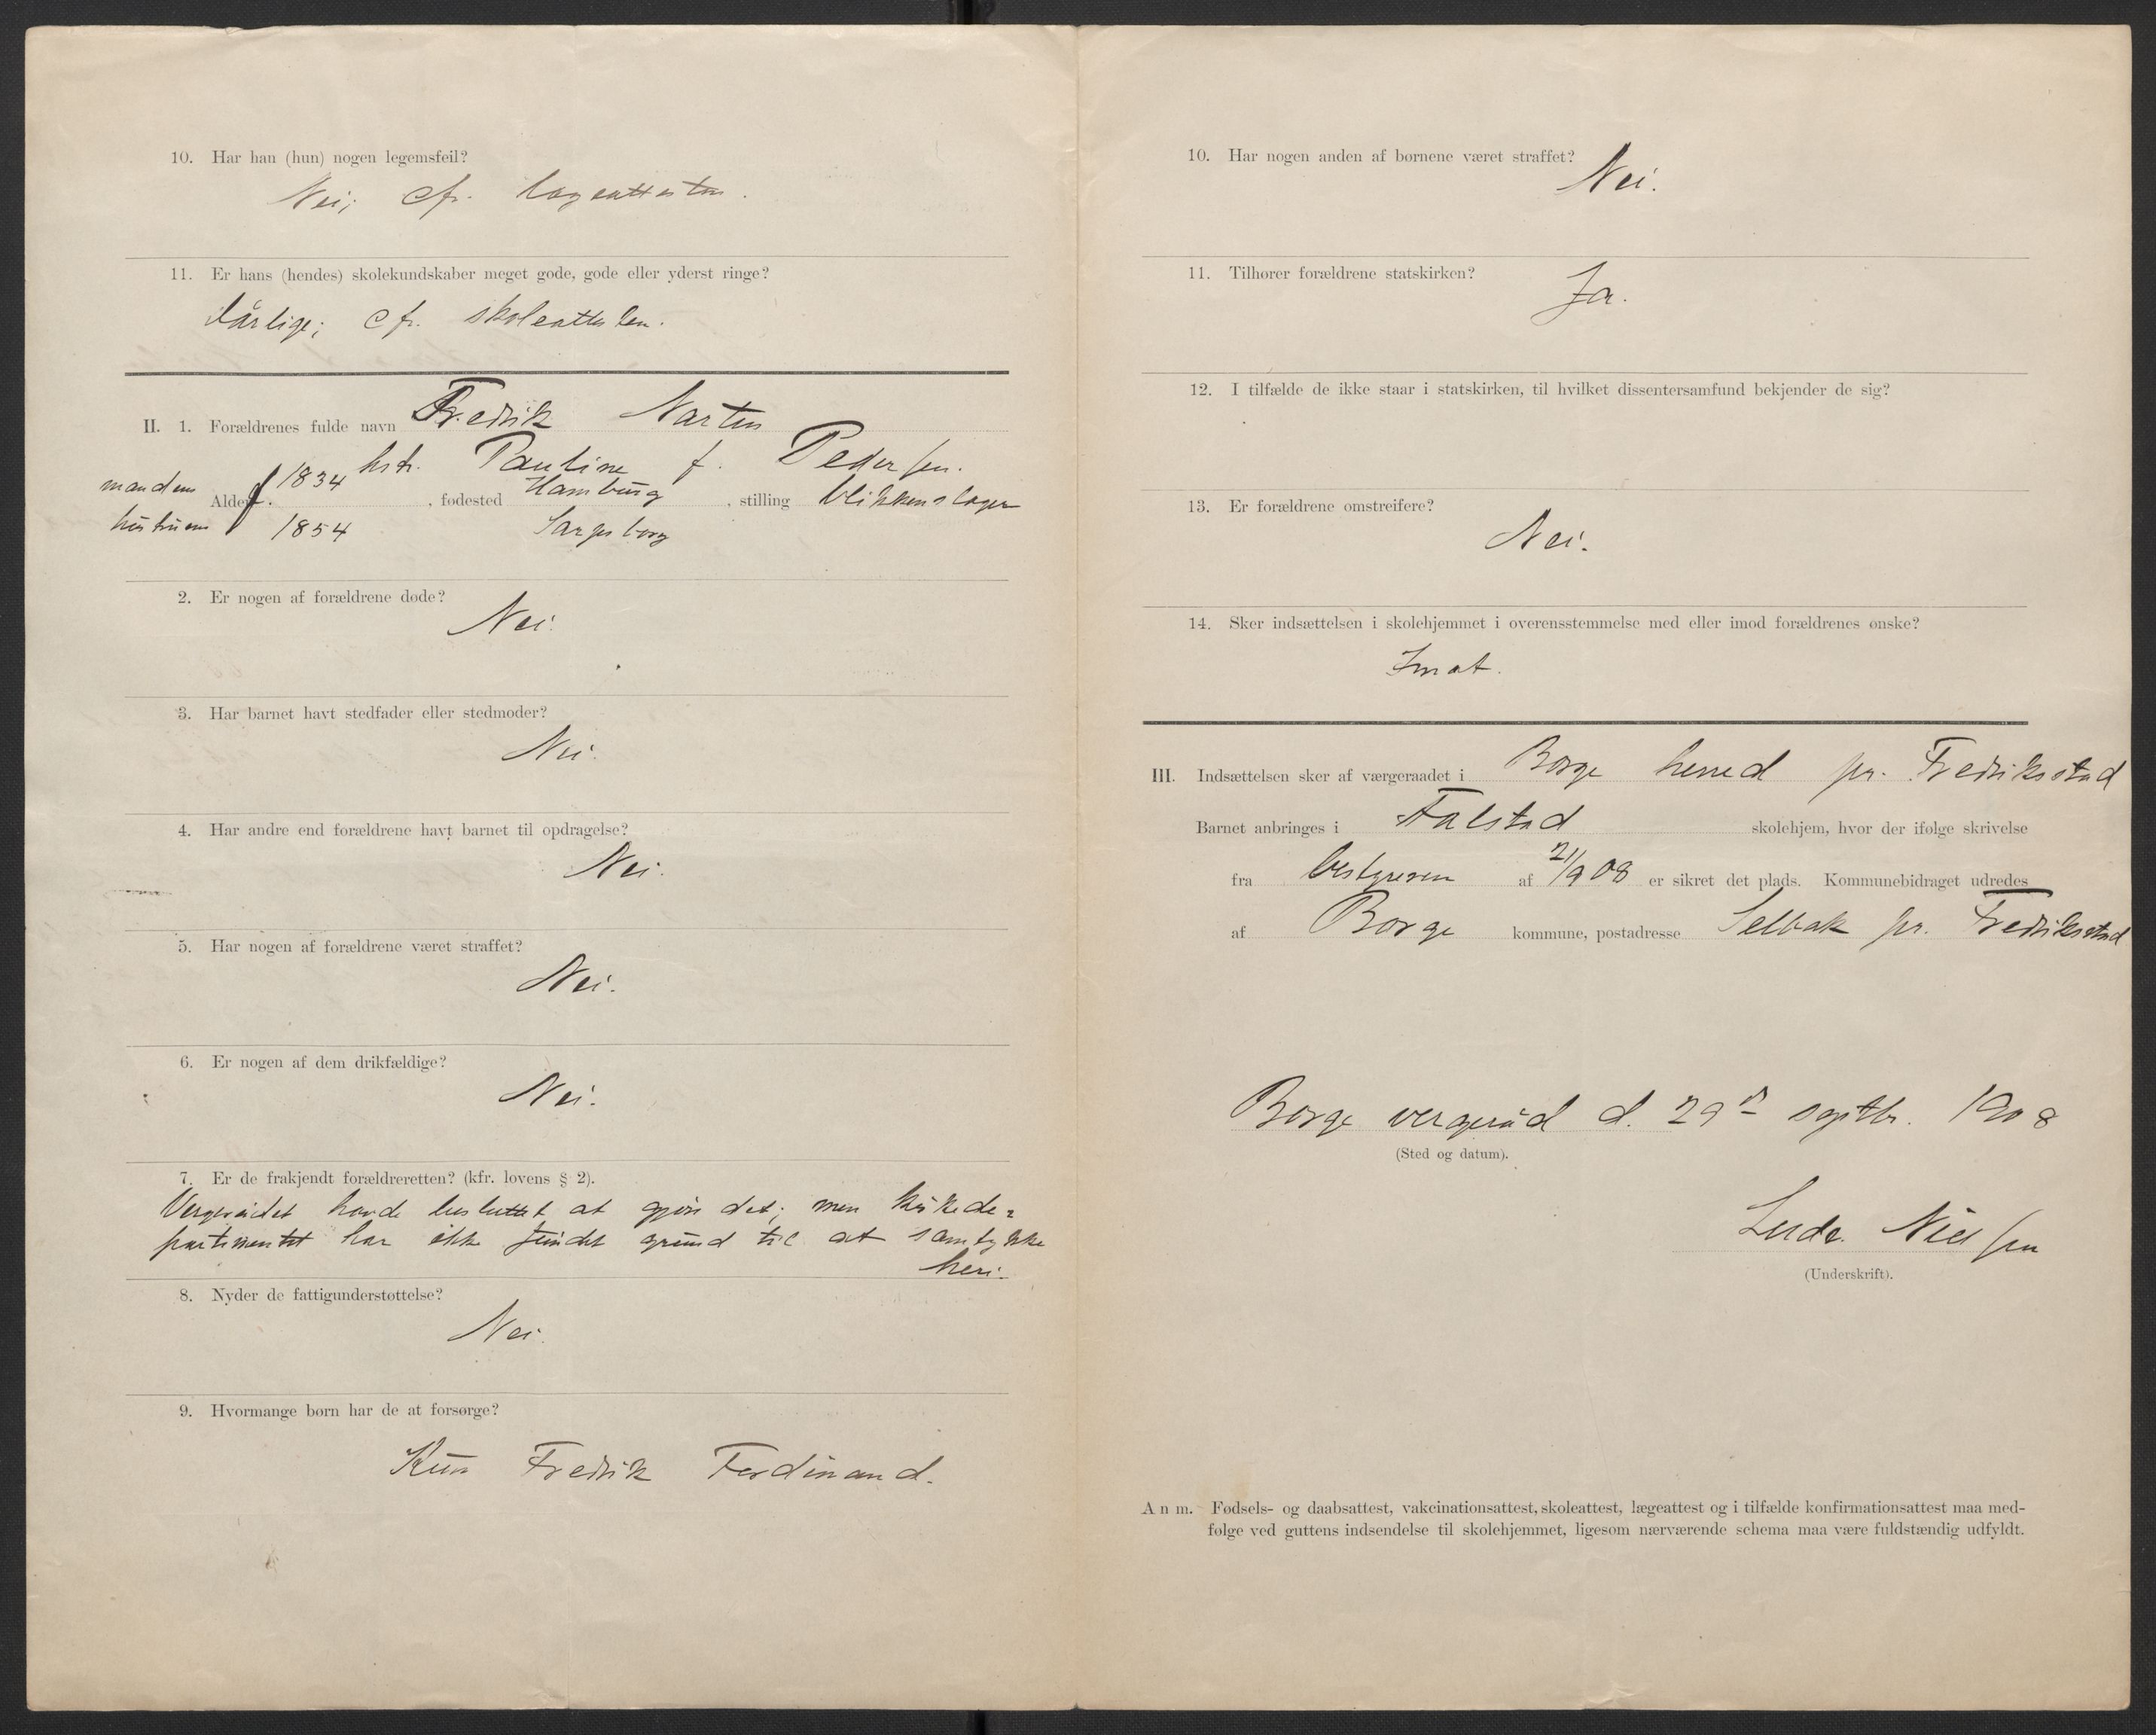 10. Har han (hun) nogen legemsfeil?
Nei; cfr. lægeattesten.
11. Er hans (hendes) skolekundskaber meget gode, gode eller yderst ringe?
Dårlige; cfr. skoleattesten.
II. 1. Forældrenes fulde navn Fredrik Narten
hstr. Pauline f. Pedersen.
mandens Alder. 1834, fødested Hamburg, stilling blikkenslager
hustruens 1854 Sarpsborg
2. Er nogen af forældrene døde?
Nei.
3. Har barnet havt stedfader eller stedmoder?
Nei.
4. Har andre end forældrene havt barnet til opdragelse?
Nei.
5. Har nogen af forældrene været straffet?
Nei.
6. Er nogen af dem drikfældige?
Nei.
7. Er de frakjendt forældreretten? (kfr. lovens § 2).
Vergerådet havde besluttet at gjøre det; men kirkede=
partimentet har ikke fundet grund til at samtykke
heri.
8. Nyder de fattigunderstøttelse?
Nei.
9. Hvormange børn har de at forsørge?
Kun Fredrik Ferdinand.
10. Har nogen anden af børnene været straffet?
Nei.
11. Tilhører forældrene statskirken?
Ja.
12. I tilfælde de ikke staar i statskirken, til hvilket dissentersamfund bekjender de sig?
13. Er forældrene omstreifere?
Nei.
14. Sker indsættelsen i skolehjemmet i overensstemmelse med eller imod forældrenes ønske?
Imot.
III. Indsættelsen sker af værgeraadet i Borge herred pr. Fredriksstad
Barnet anbringes i Falstad skolehjem, hvor der ifølge skrivelse
fra bestyreren af 21/9 08 er sikret det plads. Kommunebidraget udredes
af Borge kommune, postadresse Selbak pr. Fredriksstad
Borge vergeråd d. 29de septbr. 1908
(Sted og datum).
Ludv. Nielsen
(Underskrift).
Anm. Fødsels- og daabsattest, vakcinationsattest, skoleattest, lægeattest og i tilfælde konfirmationsattest maa med-
følge ved guttens indsendelse til skolehjemmet, ligesom nærværende schema maa være fuldstændig udfyldt.